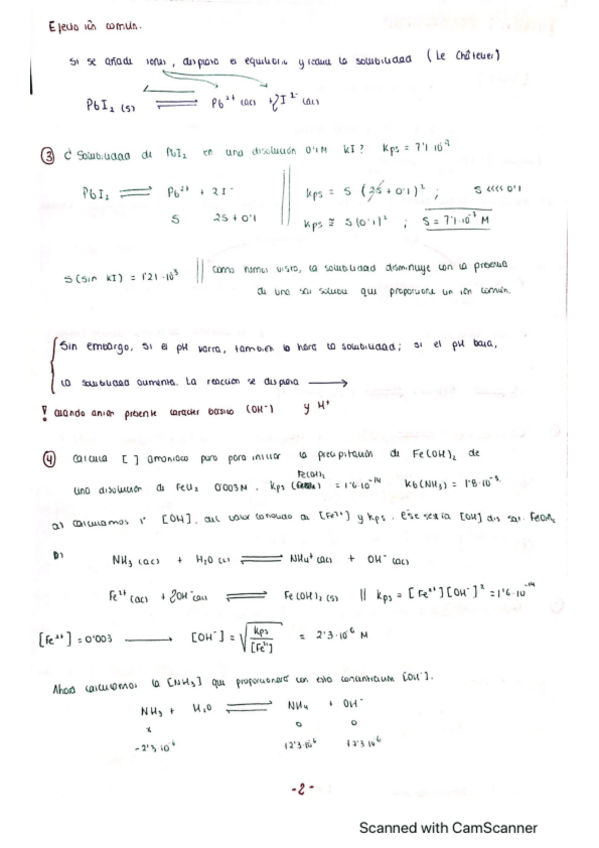 Efecto ión común.
Si se añade iones, desplaza el equilibrio y reduce la solubilidad (Le Châtelier)
PbI₂ (s) ⇌ Pb²⁺ (ac) + 2I⁻ (ac)
③ ¿Solubilidad de PbI₂ en una disolución 0'1M KI? Kps = 7'1·10⁻⁹
PbI₂ ⇌ Pb²⁺ + 2I⁻ || Kps = S (2S + 0'1)² ; S <<<< 0'1
S 2S + 0'1 || Kps ≅ S(0'1)² ; S = 7'1·10⁻⁷ M
S (sin KI) = 1'21·10⁻³ || Como hemos visto, la solubilidad disminuye con la presencia
de una sal soluble que proporcione un ión común.
Sin embargo, si el pH varía, también lo hará la solubilidad; si el pH baja,
la solubilidad aumenta. La reacción se desplaza ⟶
! Cuando anión presente carácter básico (OH⁻) y H⁺
④ Calcula [ ] amoniaco puro para iniciar la precipitación de Fe(OH)₂ de
una disolución de FeCl₂ 0'003M. Kps (Fe(OH)₂) = 1'6·10⁻¹⁴ Kb(NH₃) = 1'8·10⁻⁵.
a) Calculamos 1º [OH], del valor conocido de [Fe²⁺] y Kps. Ese sería [OH] dis sat. Fe(OH)₂
b) NH₃ (ac) + H₂O (l) ⇌ NH₄⁺ (ac) + OH⁻ (ac)
Fe²⁺ (ac) + 2OH⁻ (ac) ⇌ Fe(OH)₂ (s) || Kps = [Fe²⁺][OH⁻]² = 1'6·10⁻¹⁴
[Fe²⁺] = 0'003 ⟶ [OH⁻] = √(Kps/[Fe²⁺]) = 2'3·10⁻⁶ M
Ahora calculamos la [NH₃] que proporcionará con esta concentración [OH⁻].
NH₃ + H₂O ⇌ NH₄ + OH⁻
x 0 0
-2'3·10⁻⁶ 2'3·10⁻⁶ 2'3·10⁻⁶
-2-
Scanned with CamScanner